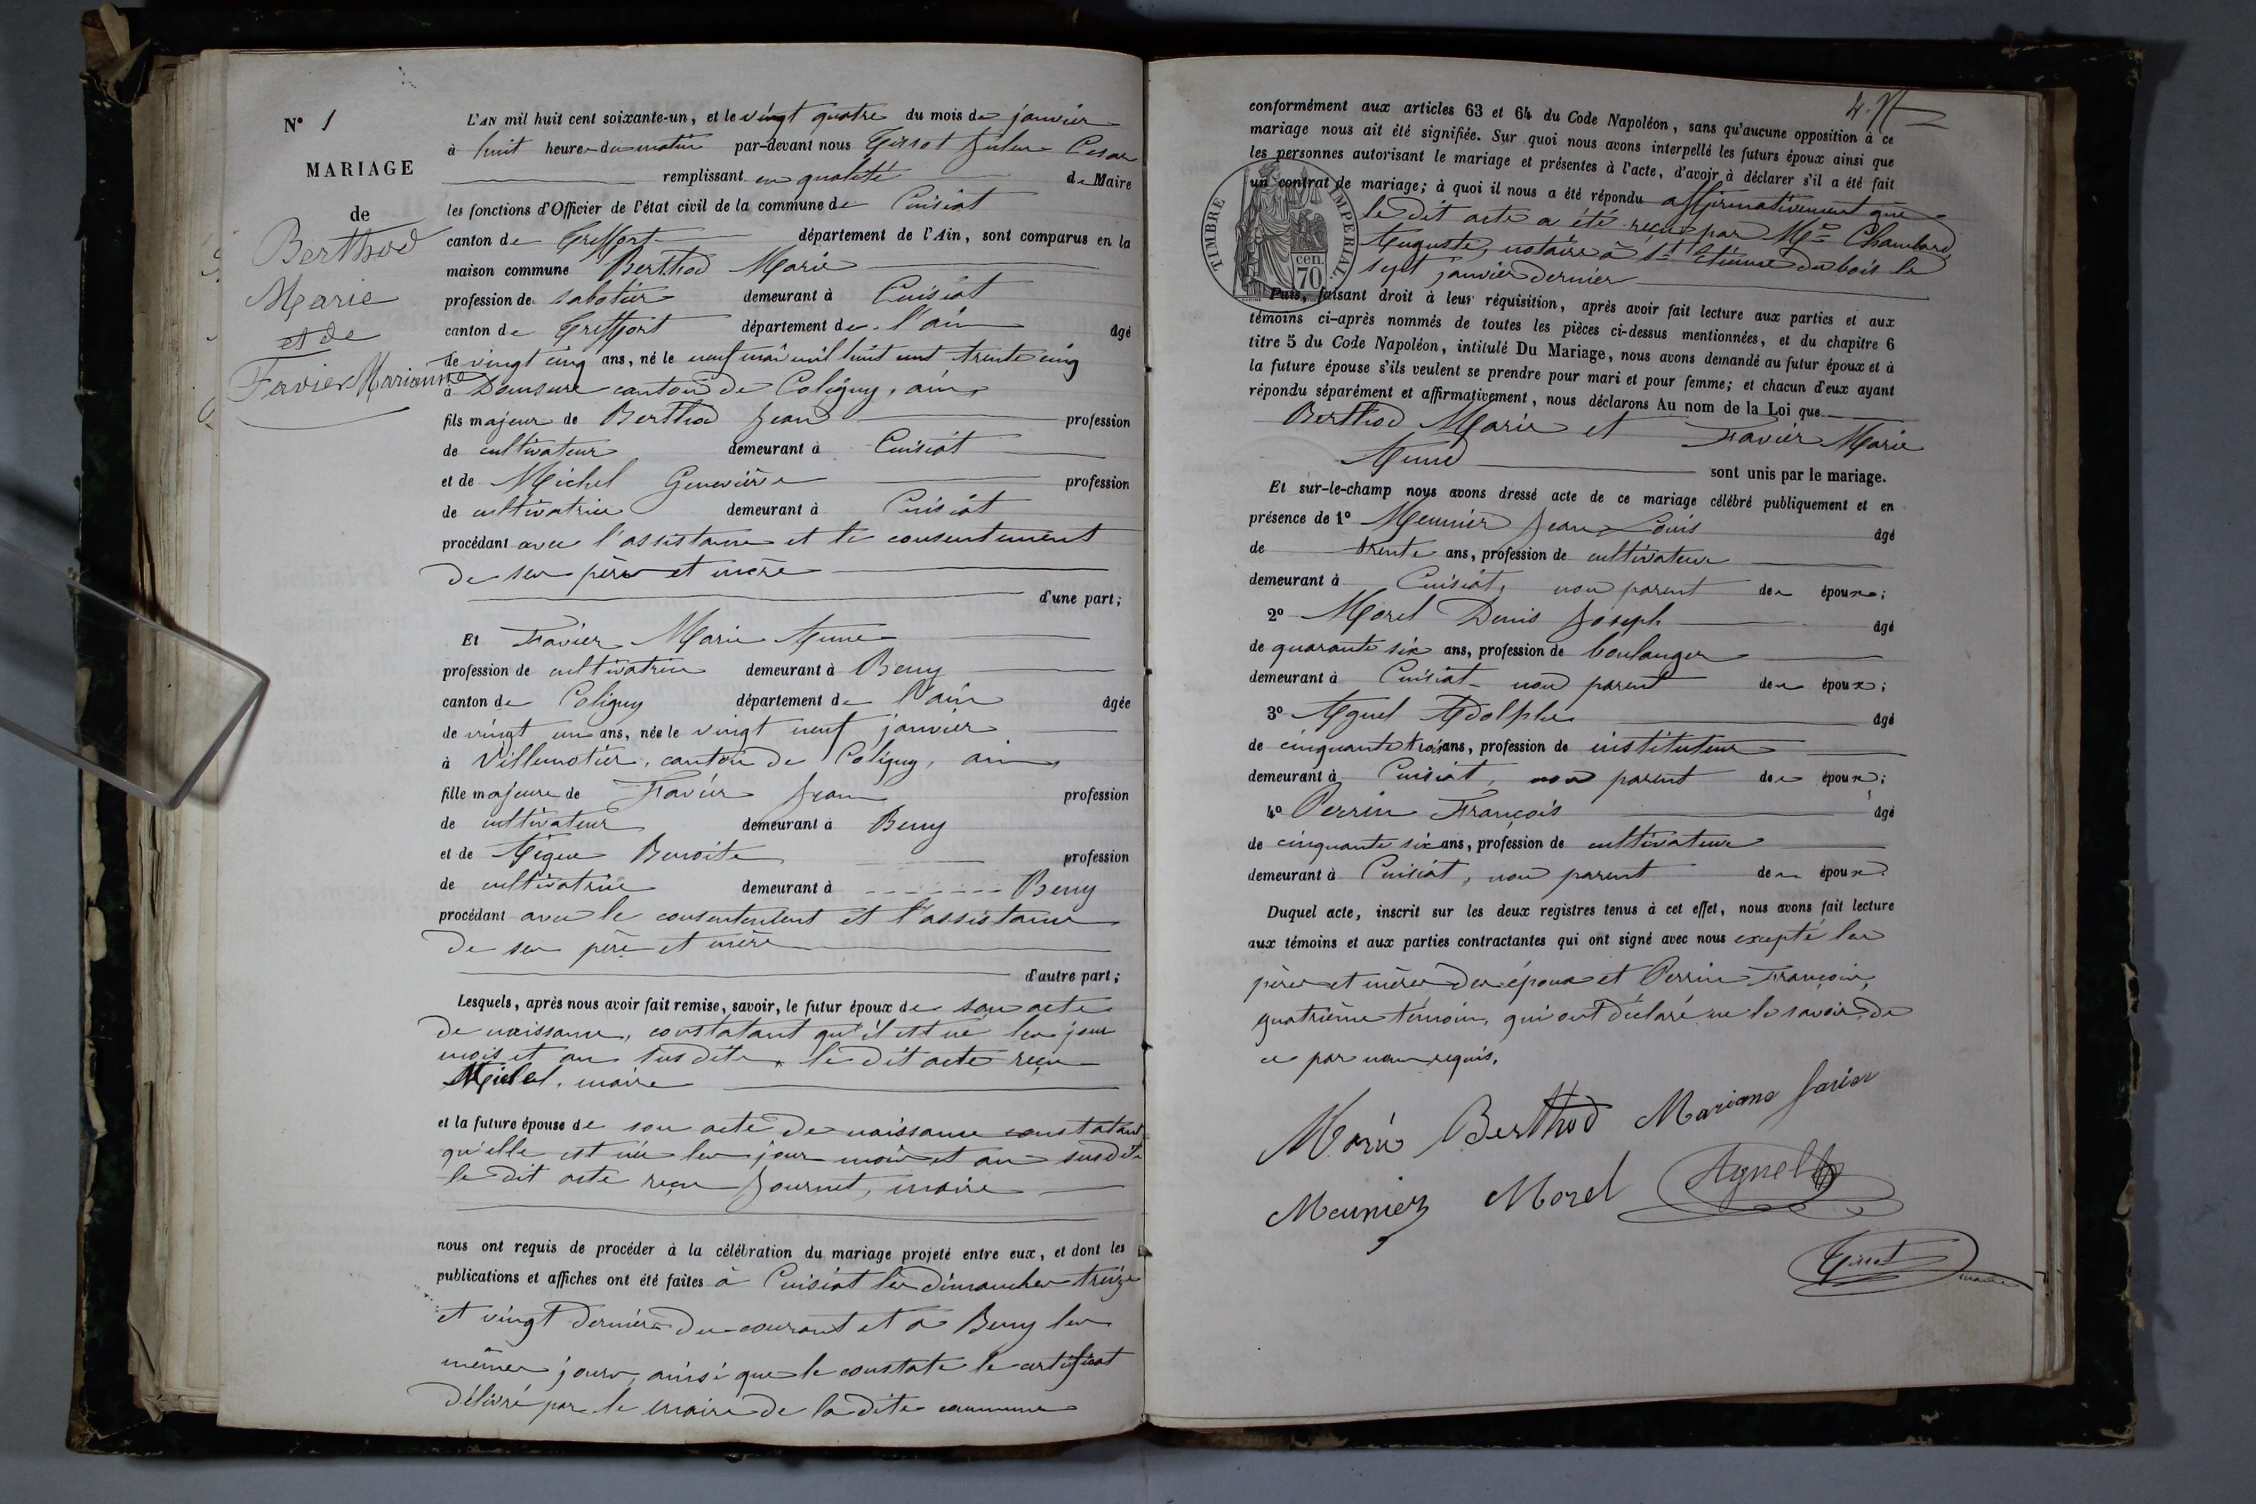 N° 1
MARIAGE
de
Berthod
Marie
et de
Favier Marianne
L'AN mil huit cent soixante-un, et le vingt quatre du mois de janvier
à huit heures du matin par-devant nous Girrot Jules Cesar
remplissant en qualité de Maire
les fonctions d'Officier de l'état civil de la commune de Cuisiat
canton de Treffort département de l'Ain, sont comparus en la
maison commune Berthod Marie
profession de sabotier demeurant à Cuisiat
canton de Treffort département de l'ain âgé
de vingt cinq ans, né le neuf mai mil huit cent trente cinq
à Domsure canton de Coligny, ain,
fils majeur de Berthod Jean profession
de cultivateur demeurant à Cuisiat
et de Michel Geneviève profession
de cultivatrice demeurant à Cuisiat
procédant avec l'assistance et le consentement
de ses père et mère
d'une part;
Et Favier Marie Anne
profession de cultivatrice demeurant à Beny
canton de Coligny département de l'ain âgée
de vingt un ans, née le vingt neuf janvier
à Villemotier, canton de Coligny, ain,
fille majeure de Favier Jean profession
de cultivateur demeurant à Beny
et de Benoite profession
de cultivatrice demeurant à Beny
procédant avec le consentement et l'assistance
de ses père et mère
d'autre part;
Lesquels, après nous avoir fait remise, savoir, le futur époux de son acte
de naissance, constatant qu'il est né les jour
mois et an susdits, le dit acte reçu
Michel, maire
et la future épouse de son acte de naissance constatant
qu'elle est née les jour mois et an susdits
le dit acte reçu Journet, maire
nous ont requis de procéder à la célébration du mariage projeté entre eux, et dont les
publications et affiches ont été faites à Cuisiat les dimanches treize
et vingt derniers du courant et à Beny les
mêmes jours, ainsi que le constate le certificat
délivré par le maire de la dite commune
4.
conformément aux articles 63 et 64 du Code Napoléon, sans qu'aucune opposition à ce
mariage nous ait été signifiée. Sur quoi nous avons interpellé les futurs époux ainsi que
les personnes autorisant le mariage et présentes à l'acte, d'avoir à déclarer s'il a été fait
un contrat de mariage; à quoi il nous a été répondu affirmativement que
le dit acte a été reçu par Me Chambard
Auguste, notaire à St Etienne du bois le
sept janvier dernier
TIMBRE IMPERIAL
70 cen.
Puis, faisant droit à leur réquisition, après avoir fait lecture aux parties et aux
témoins ci-après nommés de toutes les pièces ci-dessus mentionnées, et du chapitre 6
titre 5 du Code Napoléon, intitulé Du Mariage, nous avons demandé au futur époux et à
la future épouse s'ils veulent se prendre pour mari et pour femme; et chacun d'eux ayant
répondu séparément et affirmativement, nous déclarons Au nom de la Loi que
Berthod Marie et Favier Marie
Anne sont unis par le mariage.
Et sur-le-champ nous avons dressé acte de ce mariage célébré publiquement et en
présence de 1° Meunier Jean Louis âgé
de trente ans, profession de cultivateur
demeurant à Cuisiat, non parent des époux;
2° Morel Denis Joseph âgé
de quarante six ans, profession de boulanger
demeurant à Cuisiat non parent des époux;
3° Agnel Adolphe âgé
de cinquante trois ans, profession de instituteur
demeurant à Cuisiat, non parent des époux;
4° Perrin François âgé
de cinquante six ans, profession de cultivateur
demeurant à Cuisiat, non parent des époux.
Duquel acte, inscrit sur les deux registres tenus à cet effet, nous avons fait lecture
aux témoins et aux parties contractantes qui ont signé avec nous excepté les
pères et mères des époux et Perrin François,
quatrième témoin, qui ont déclaré ne le savoir de
ce par nous requis.
Marie Berthod Mariane favier
Meunier Morel Agnel
Girrot maire